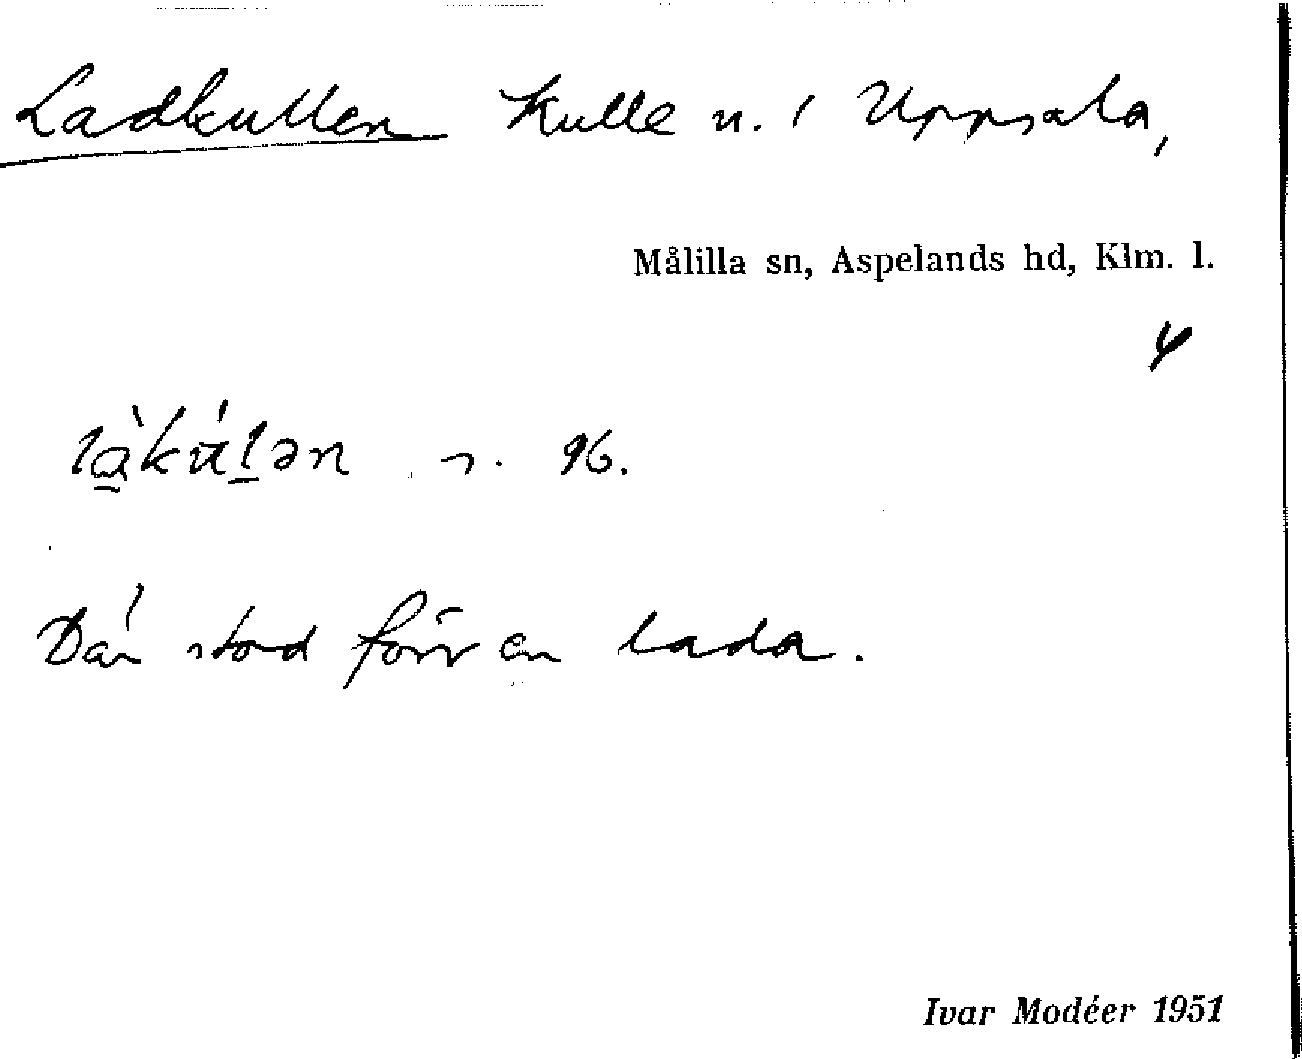 Ladkullen Kulle n. i Uppsala,
Målilla sn, Aspelands hd, Klm. l.
4
là̱kúḻən s. 96.
Där stod förr en lada.
Ivar Modéer 1951